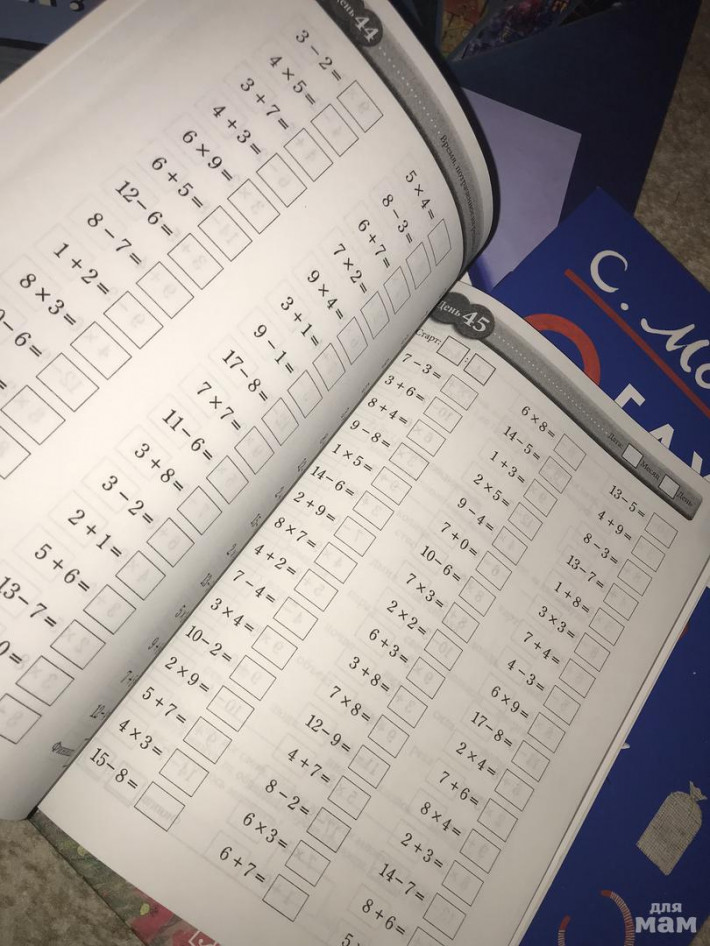 День 44
3 − 2 =
4 × 5 =
3 + 7 =
4 + 3 =
6 × 9 =
6 + 5 =
12 − 6 =
8 − 7 =
1 + 2 =
8 × 3 =
5 × 4 =
8 − 3 =
6 + 7 =
7 × 2 =
9 × 4 =
3 + 1 =
9 − 1 =
17 − 8 =
7 × 7 =
11 − 6 =
3 + 8 =
3 − 2 =
2 + 1 =
5 + 6 =
13 − 7 =
День 45
Старт:
7 − 3 =
3 + 6 =
8 + 4 =
9 − 8 =
1 × 5 =
14 − 6 =
2 + 9 =
8 × 7 =
4 + 2 =
7 − 4 =
3 × 4 =
10 − 2 =
2 × 9 =
5 + 7 =
4 × 3 =
15 − 8 =
6 × 8 =
14 − 5 =
1 + 3 =
2 × 5 =
9 − 4 =
7 + 0 =
10 − 6 =
7 × 3 =
2 × 2 =
6 + 3 =
3 + 8 =
7 × 8 =
12 − 9 =
4 + 7 =
8 − 2 =
6 × 3 =
6 + 7 =
Месяц
День
13 − 5 =
4 + 9 =
8 − 3 =
13 − 7 =
1 + 8 =
3 × 3 =
7 + 4 =
4 − 3 =
6 × 9 =
17 − 8 =
2 × 4 =
7 + 6 =
8 × 4 =
2 + 3 =
14 − 7 =
8 + 6 =
С.
для
мам